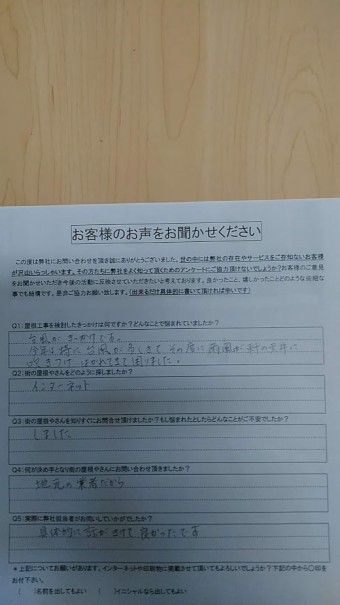 お客様のお声をお聞かせください
この度は弊社にお問い合わせを頂き誠にありがとうございました。世の中には弊社の存在やサービスをご存知ないお客様
が沢山いらっしゃいます。その方たちに弊社をよく知って頂くためのアンケートにご協力頂けないでしょうか?お客様のご意見
をお聞かせいただき今後の活動に反映させていただきたいと考えております。良かったこと、嬉しかったことどのような些細な
事でも結構です。是非ご協力お願い致します。(出来るだけ具体的に書いて頂ければ幸いです)
Q1:屋根工事を検討したきっかけは何ですか?どんなことで悩まれていましたか?
台風がきっかけです。
今年は特に台風が多しきて、その度に雨風が軒の天井に
吹きつけ はがれてきて困りました。
Q2:街の屋根やさんをどのように探しましたか?
インターネット
Q3:街の屋根やさんを知りすぐにお問合せ頂けましたか?もし悩まれたとしたらどんなことがご不安でしたか?
しました
Q4:何が決め手となり街の屋根やさんにお問い合わせ頂きましたか?
地元の業者だから
Q5:実際に弊社担当者がお伺いしていかがでしたか?
具体的に話がきけて良かったです
*上記についてお願いがあります。インターネットや印刷物に掲載させて頂いてもよろしいでしょうか?下記の中から〇印を
お付下さい。
( )名前を出してもよい ( )イニシャルなら出してもよい